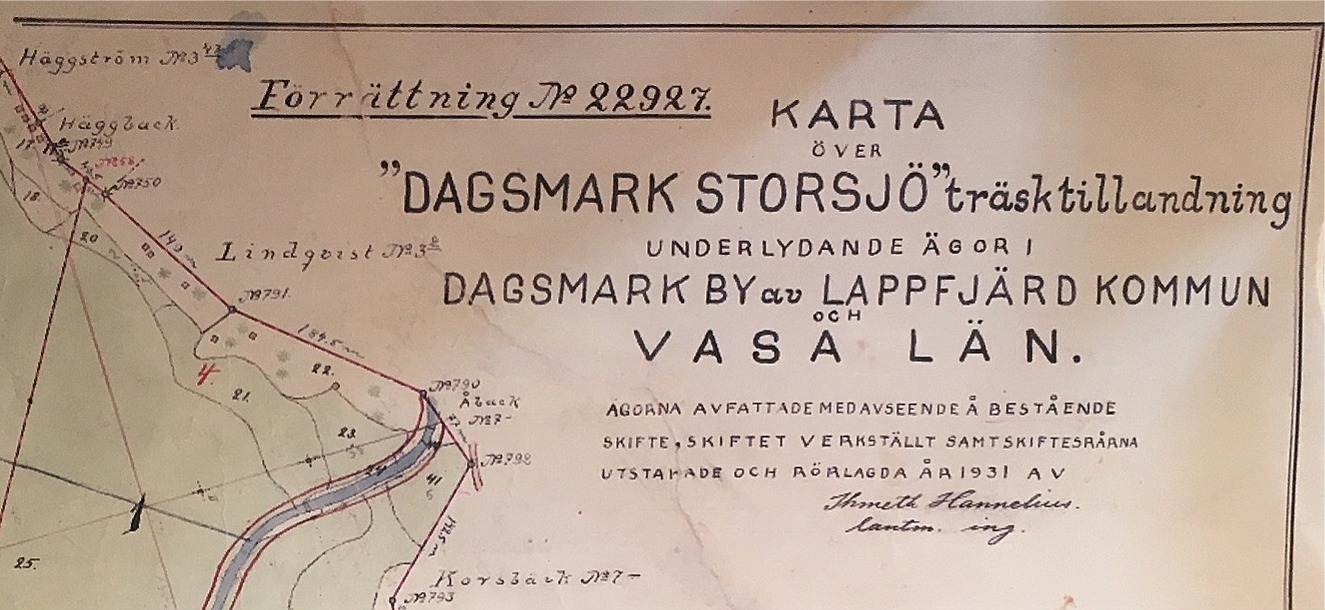 Häggström №3
Förrättning № 22927.
KARTA
Häggback.
ÖVER
№749
№58
№750
"DAGSMARK STORSJÖ" träsktillandning
18.
20
149 m
Lindqvist №3
UNDERLYDANDE ÄGOR I
№791.
DAGSMARK BY av LAPPFJÄRD KOMMUN
OCH
184,5 m
VASA LÄN.
4.
22.
21.
№790
Åback
№7-
ÄGORNA AVFATTADE MED AVSEENDE Å BESTÅENDE
23.
24
SKIFTE, SKIFTET VERKSTÄLLT SAMT SKIFTESRÅRNA
№792
41
UTSTAKADE OCH RÖRLAGDA ÅR 1931 AV
Thmeth Hannelius.
1
lantm. ing.
25.
Korsbäck №7-
№793